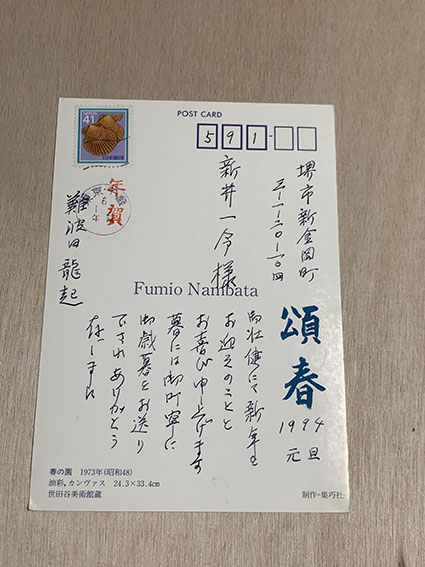 POST CARD
NIPPON
41
591
年賀
堺市新金岡町
新井一令様
難波田龍起
Fumio Nambata
頌春
1994
元旦
御壮健にて新年を
お迎えのことと
お喜び申上げます
暮には御丁寧に
御歳暮をお送り
下されありがとう
存じます
春の園 1973年(昭和48)
油彩,カンヴァス 24.3×33.4cm
世田谷美術館蔵
制作=集巧社